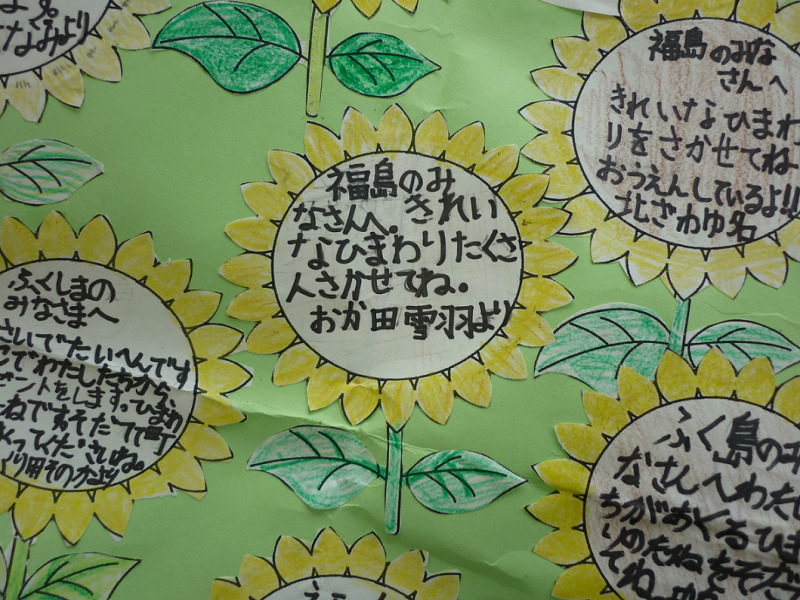 なみより
福島のみな
さんへ
きれいなひまわ
りをさかせてね
おうえんしているよ!!
北ざわゆ名
福島のみ
なさんへ。きれい
なひまわりたくさ
人さかせてね。
おか田雪羽より
ふくしまの
みなさまへ
さいでたいへんです
でわたしたちから
ゼントをします。ひまわ
ねですそだてて町
ってください。
ふく島のみ
なさんへわた
ちがおくるひま
りのたねをそだ
てね